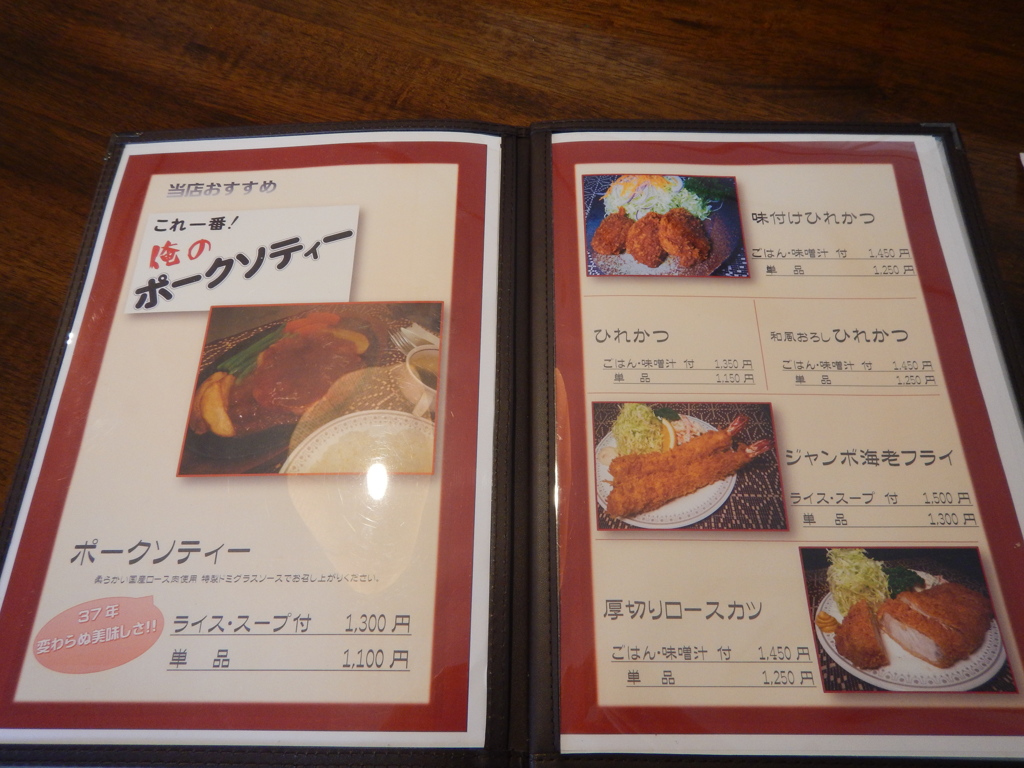 当店おすすめ
これ一番!
俺の
ポークソティー
ポークソティー
柔らかい国産ロース肉使用 特製ドミグラスソースでお召し上がりください。
37年
変わらぬ美味しさ!!
ライス・スープ付 1,300円
単品 1,100円
味付けひれかつ
ごはん・味噌汁 付 1,450円
単品 1,250円
ひれかつ
ごはん・味噌汁 付 1,350円
単品 1,150円
和風おろしひれかつ
ごはん・味噌汁 付 1,450円
単品 1,250円
ジャンボ海老フライ
ライス・スープ 付 1,500円
単品 1,300円
厚切りロースカツ
ごはん・味噌汁 付 1,450円
単品 1,250円